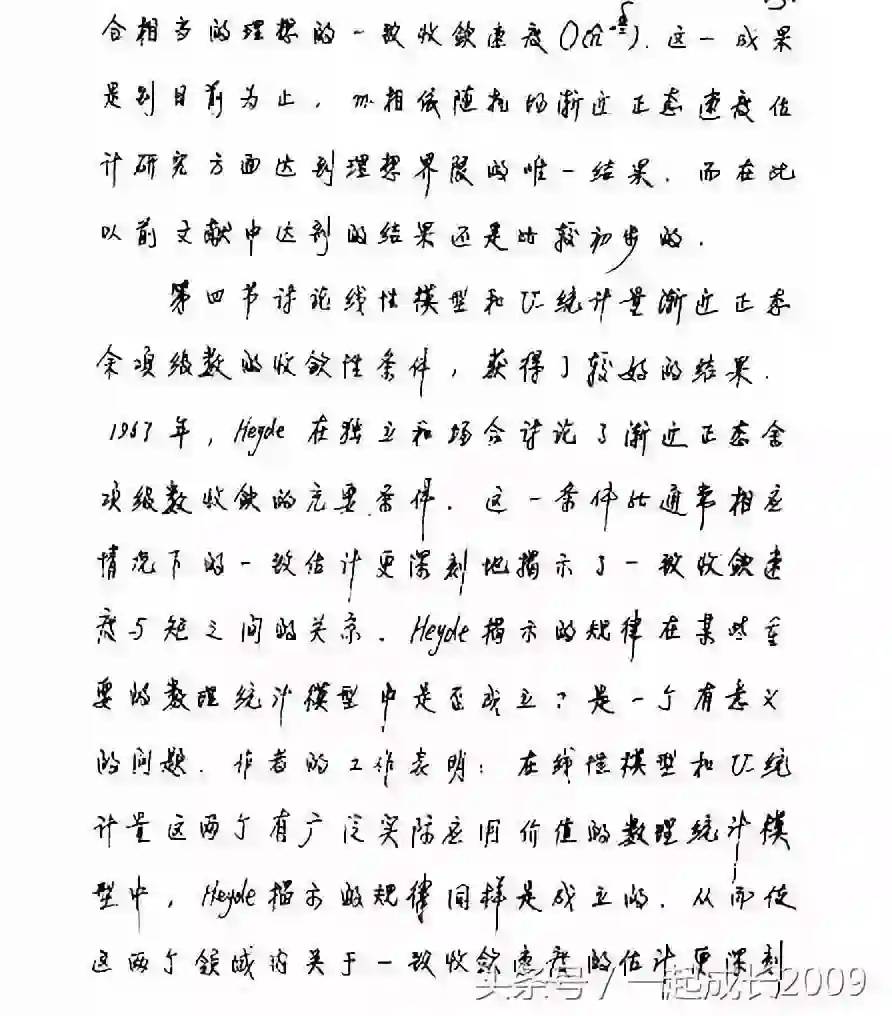 合相当的理想的一致收敛速度O(n^{-δ/2}). 这一成果
是到目前为止, m-相依随机场渐近正态速度估
计研究方面达到理想界限的唯一结果. 而在此
以前文献中达到的结果还是比较初步的.
第四节讨论线性模型和U-统计量渐近正态
余项级数的收敛性条件, 获得了较好的结果.
1967年, Heyde在独立和场合讨论了渐近正态余
项级数收敛的充要条件. 这一条件比通常相应
情况下的一致估计更深刻地揭示了一致收敛速
度与矩之间的关系. Heyde揭示的规律在某些重
要的数理统计模型中是否成立? 是一个有意义
的问题. 作者的工作表明: 在线性模型和U-统
计量这两个有广泛实际应用价值的数理统计模
型中, Heyde揭示的规律同样是成立的. 从而使
这两个领域内关于一致收敛速度的估计更深刻
头条号 / 一起成长2009